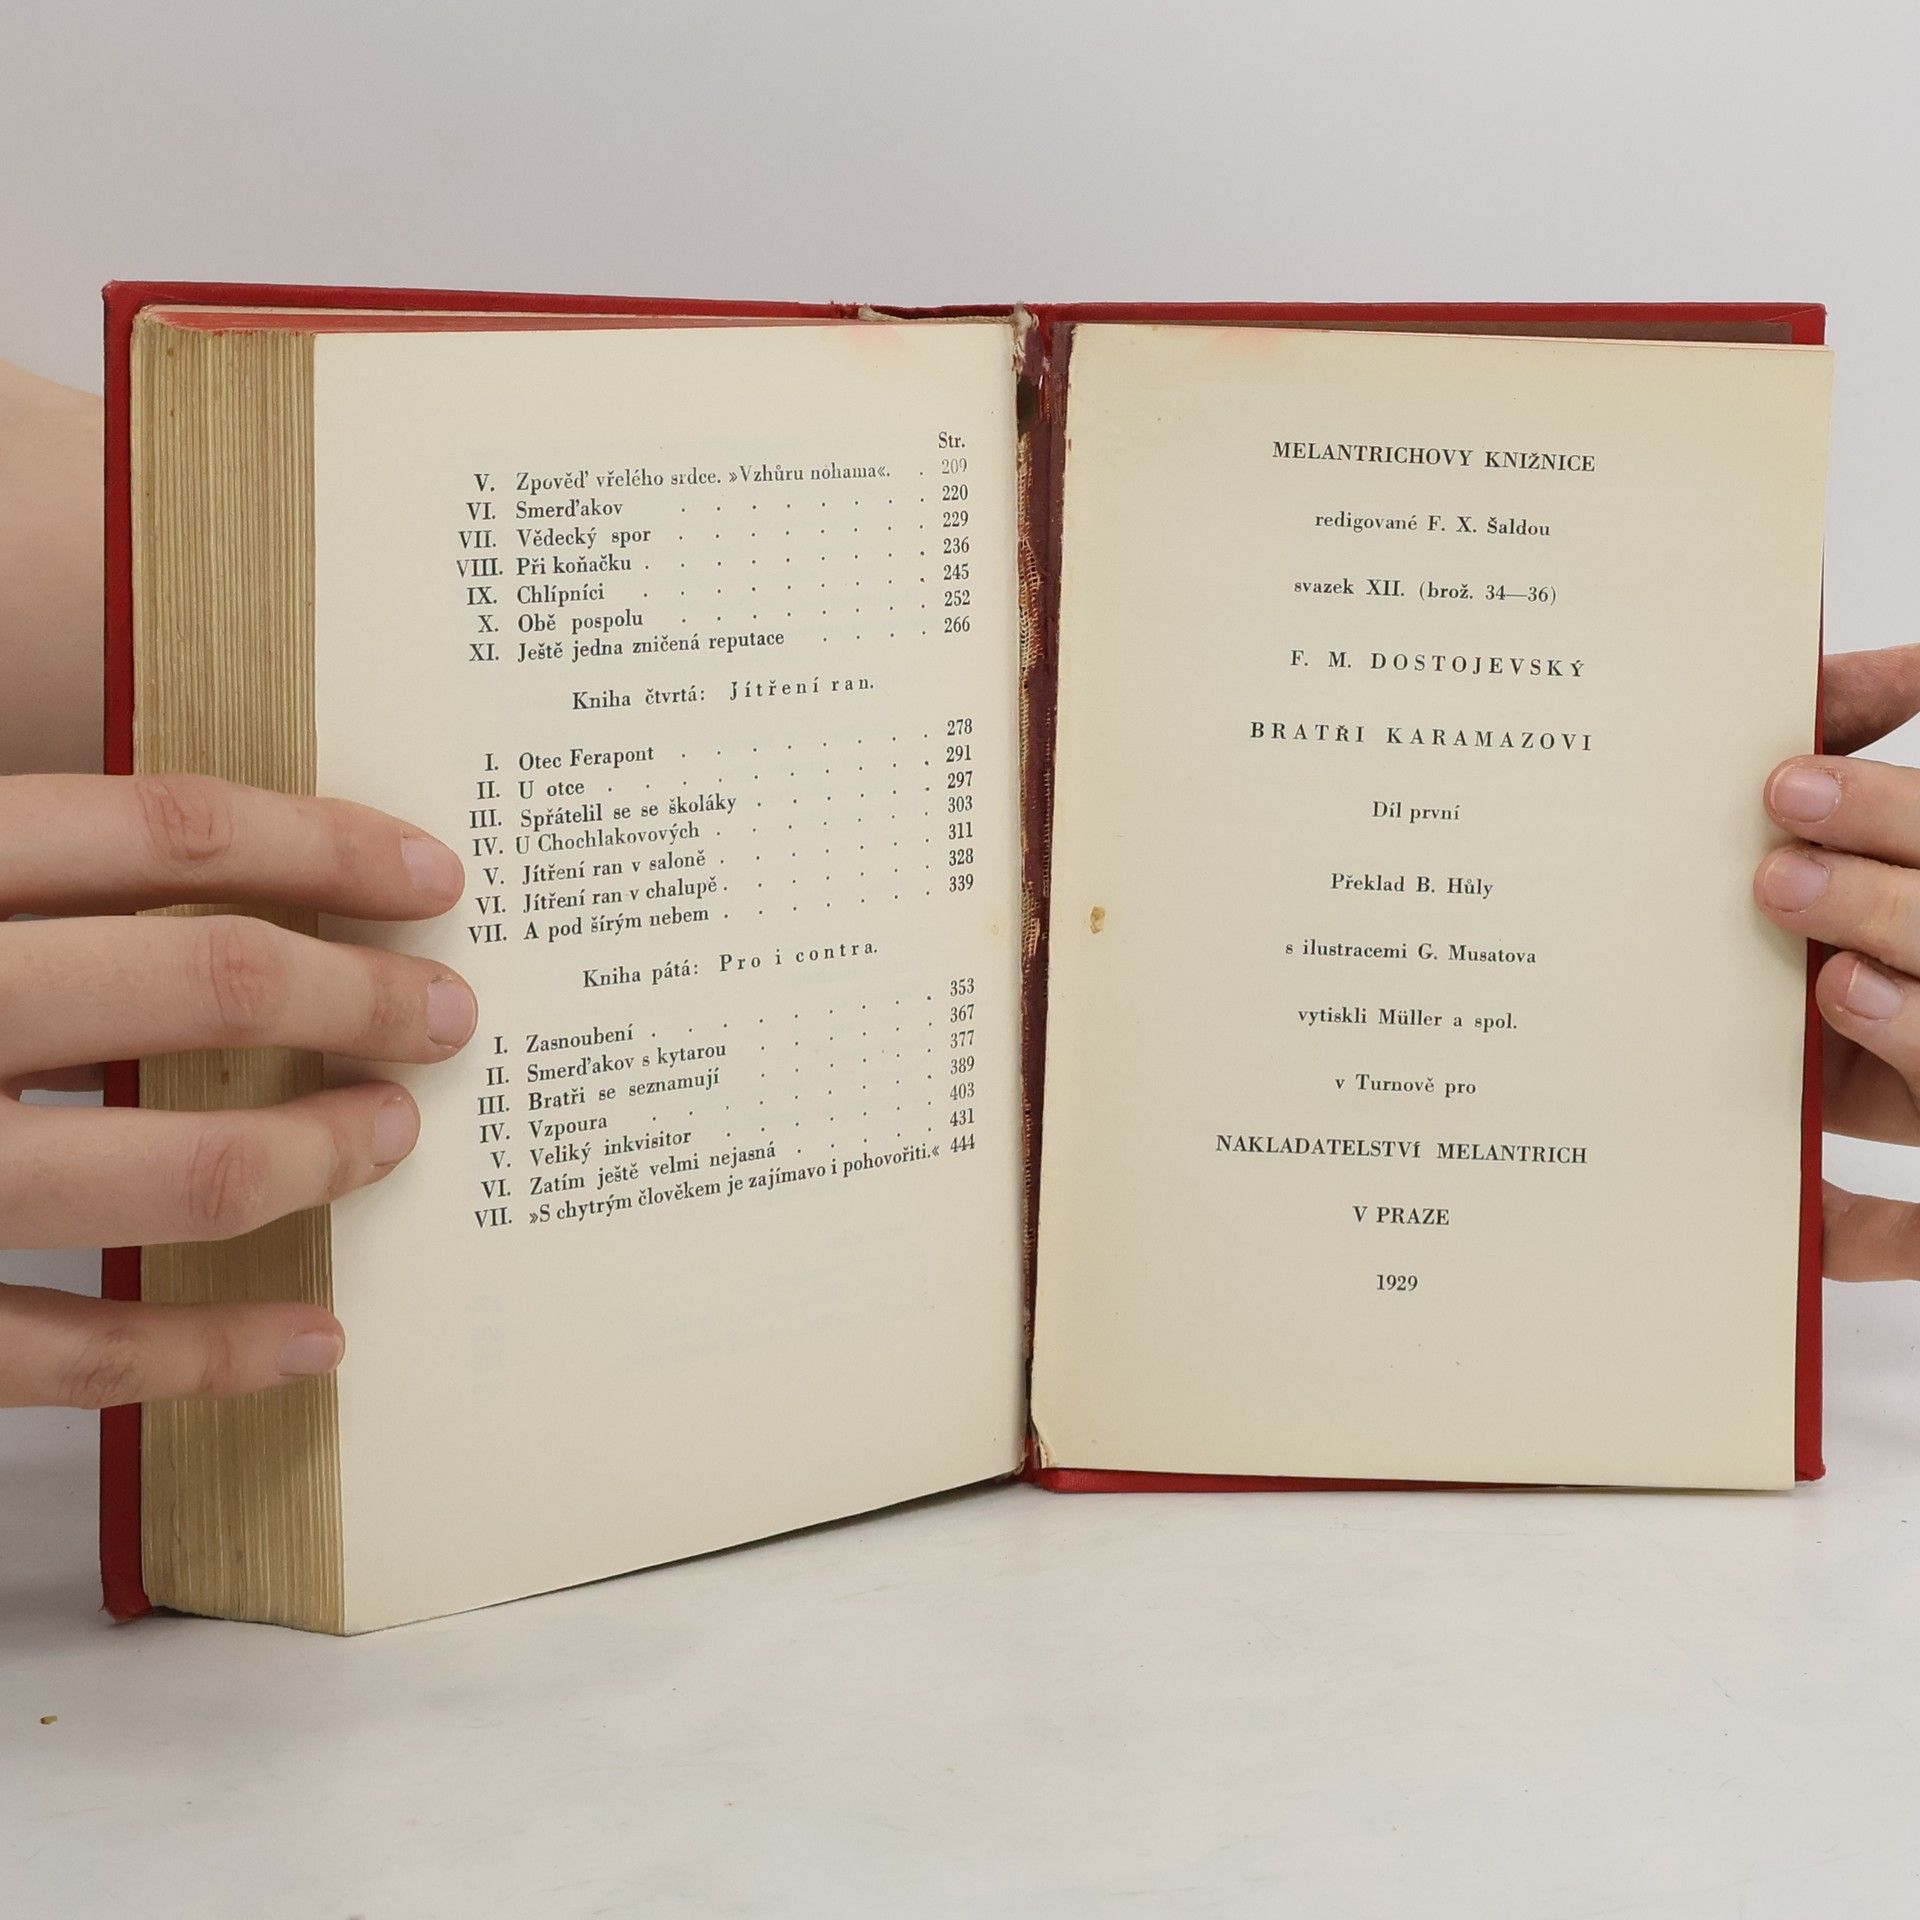 Str.
V. Zpověď vřelého srdce. »Vzhůru nohama«. . 209
VI. Smerďakov . . . . . . . 220
VII. Vědecký spor . . . . . . . 229
VIII. Při koňačku . . . . . . . . 236
IX. Chlípníci . . . . . . . . 245
X. Obě pospolu . . . . . . . 252
XI. Ještě jedna zničená reputace . . . . 266
Kniha čtvrtá: Jítření ran.
I. Otec Ferapont . . . . . . . 278
II. U otce . . . . . . . . . 291
III. Spřátelil se se školáky . . . . . 297
IV. U Chochlakovových . . . . . . 303
V. Jítření ran v saloně . . . . . . 311
VI. Jítření ran v chalupě . . . . . . 328
VII. A pod šírým nebem . . . . . . 339
Kniha pátá: Pro i contra.
I. Zasnoubení . . . . . . . . 353
II. Smerďakov s kytarou . . . . . 367
III. Bratři se seznamují . . . . . 377
IV. Vzpoura . . . . . . . . 389
V. Veliký inkvisitor . . . . . . 403
VI. Zatím ještě velmi nejasná . . . . . 431
VII. »S chytrým člověkem je zajímavo i pohovořiti.« 444
MELANTRICHOVY KNIŽNICE
redigované F. X. Šaldou
svazek XII. (brož. 34—36)
F. M. DOSTOJEVSKÝ
BRATŘI KARAMAZOVI
Díl první
Překlad B. Hůly
s ilustracemi G. Musatova
vytiskli Müller a spol.
v Turnově pro
NAKLADATELSTVÍ MELANTRICH
V PRAZE
1929